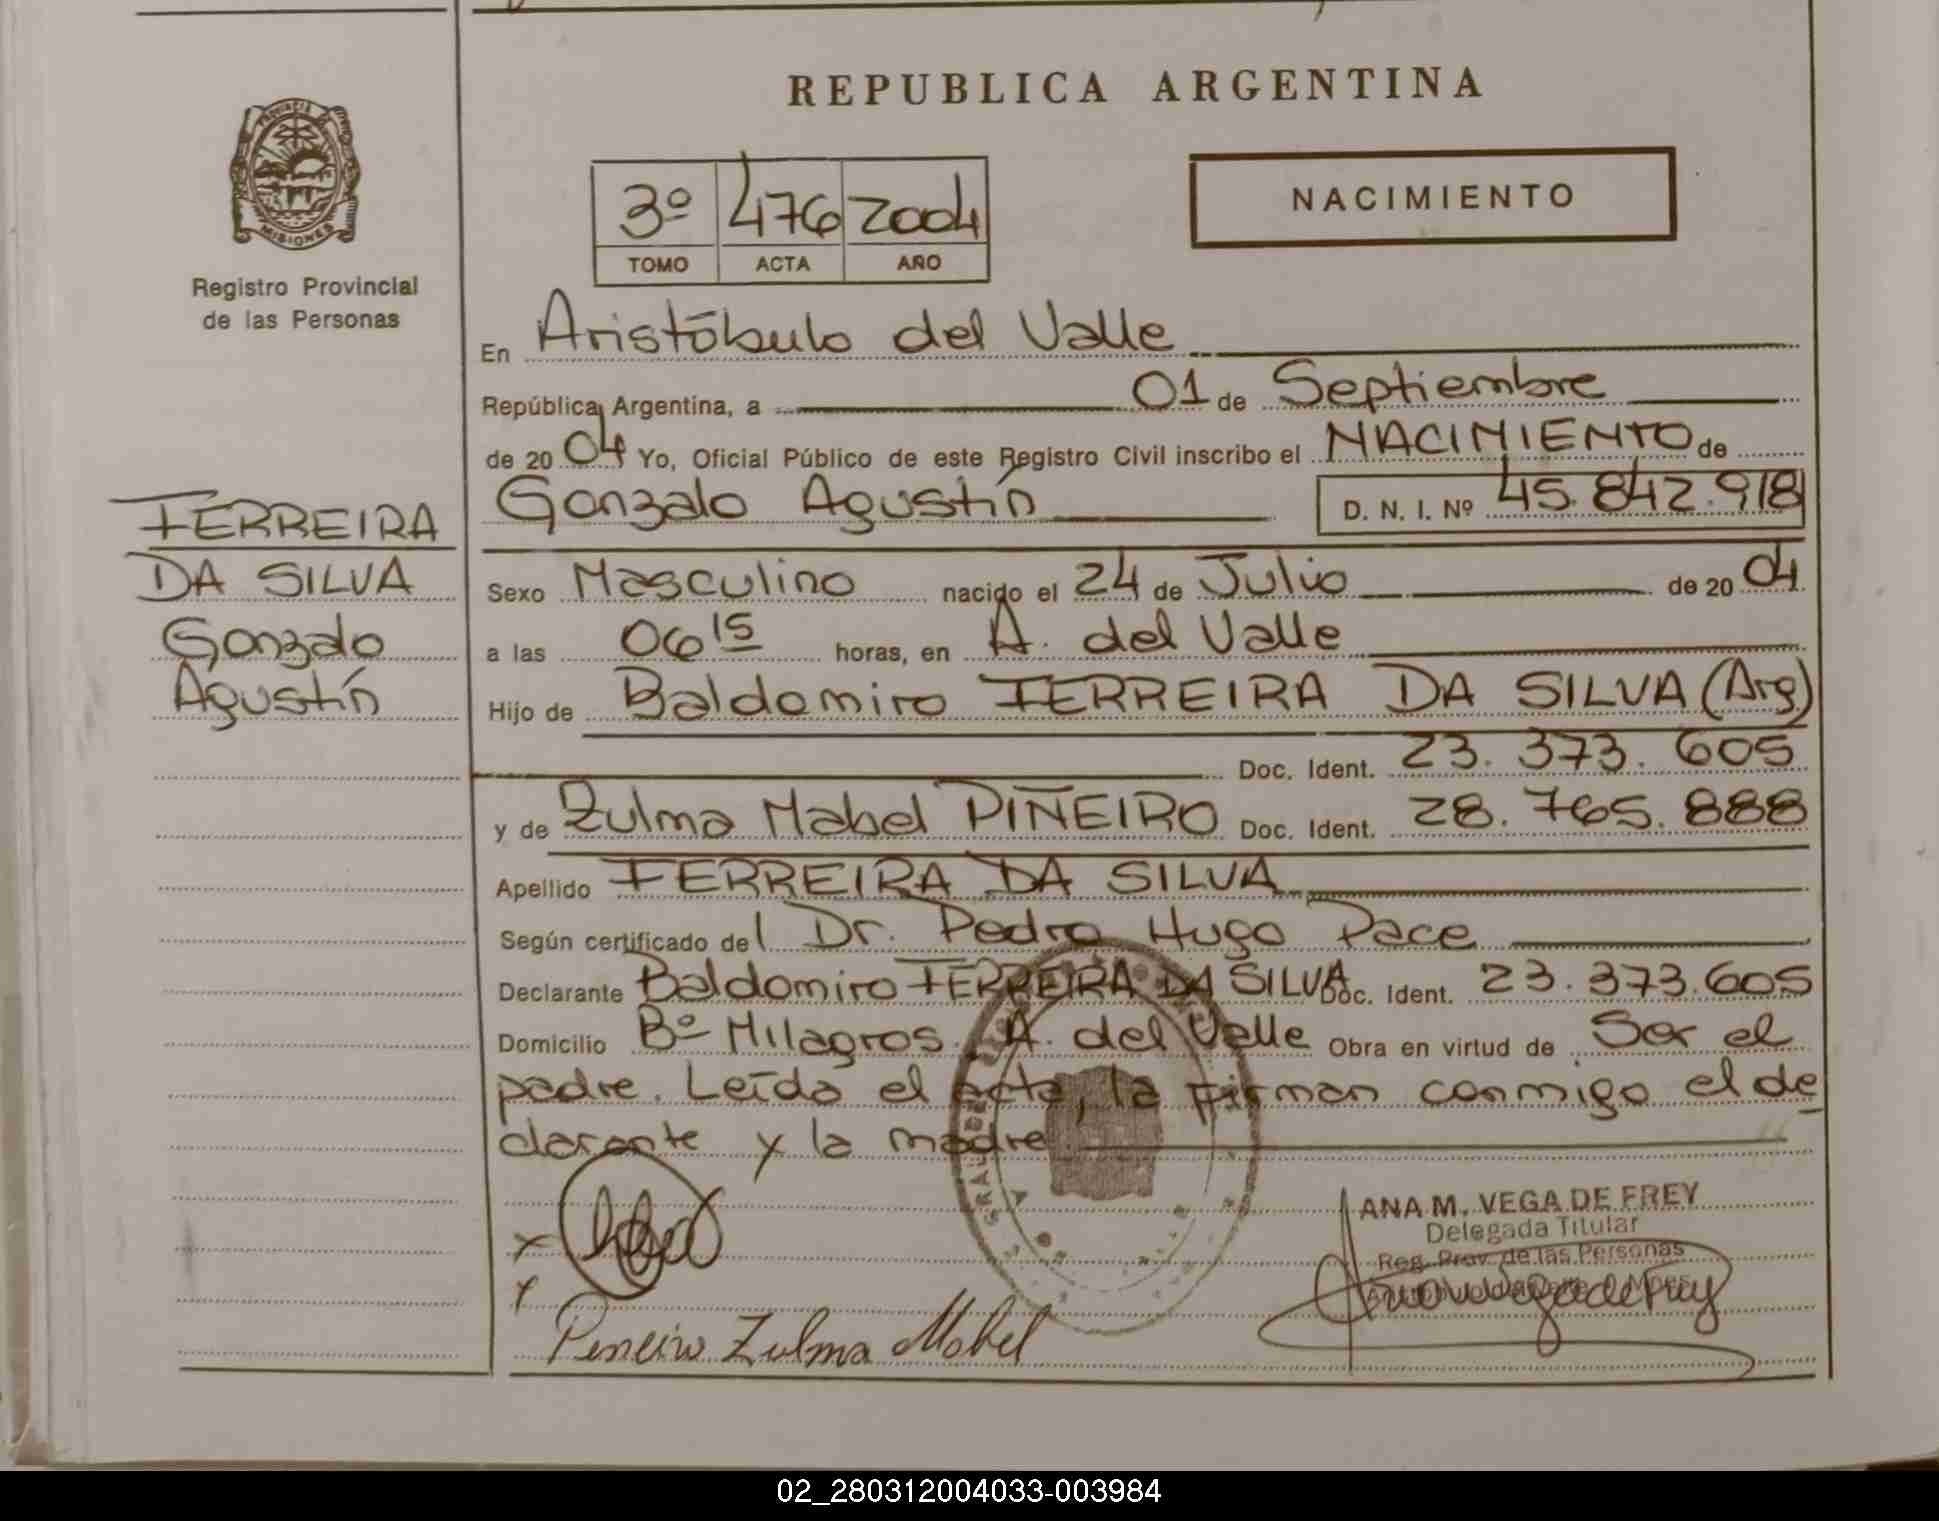 REPUBLICA ARGENTINA
PROVINCIA DE
MISIONES
Registro Provincial
de las Personas
3º 476 2004
TOMO ACTA AÑO
NACIMIENTO
En Aristóbulo del Valle
República Argentina, a 01 de Septiembre
de 2004 Yo, Oficial Público de este Registro Civil inscribo el NACIMIENTO de
Gonzalo Agustín D. N. I. Nº 45.842.918
FERREIRA
DA SILVA
Gonzalo
Agustín
Sexo Masculino nacido el 24 de Julio de 2004.
a las 06 15 horas, en A. del Valle
Hijo de Baldomiro FERREIRA DA SILVA (Arg)
Doc. Ident. 23. 373. 605
y de Zulma Mabel PIÑEIRO Doc. Ident. 28. 765. 888
Apellido FERREIRA DA SILVA
Según certificado del Dr. Pedro Hugo Pace
Declarante Baldomiro FERREIRA DA SILVA Doc. Ident. 23. 373. 605
Domicilio Bº Milagros. A. del Valle Obra en virtud de Ser el
padre. Leída el acta, la firman conmigo el de
clarante y la madre
ANA M. VEGA DE FREY
Delegada Titular
Reg. Prov. de las Personas
x
x
Peneiro Zulma Mabel
02_280312004033-003984